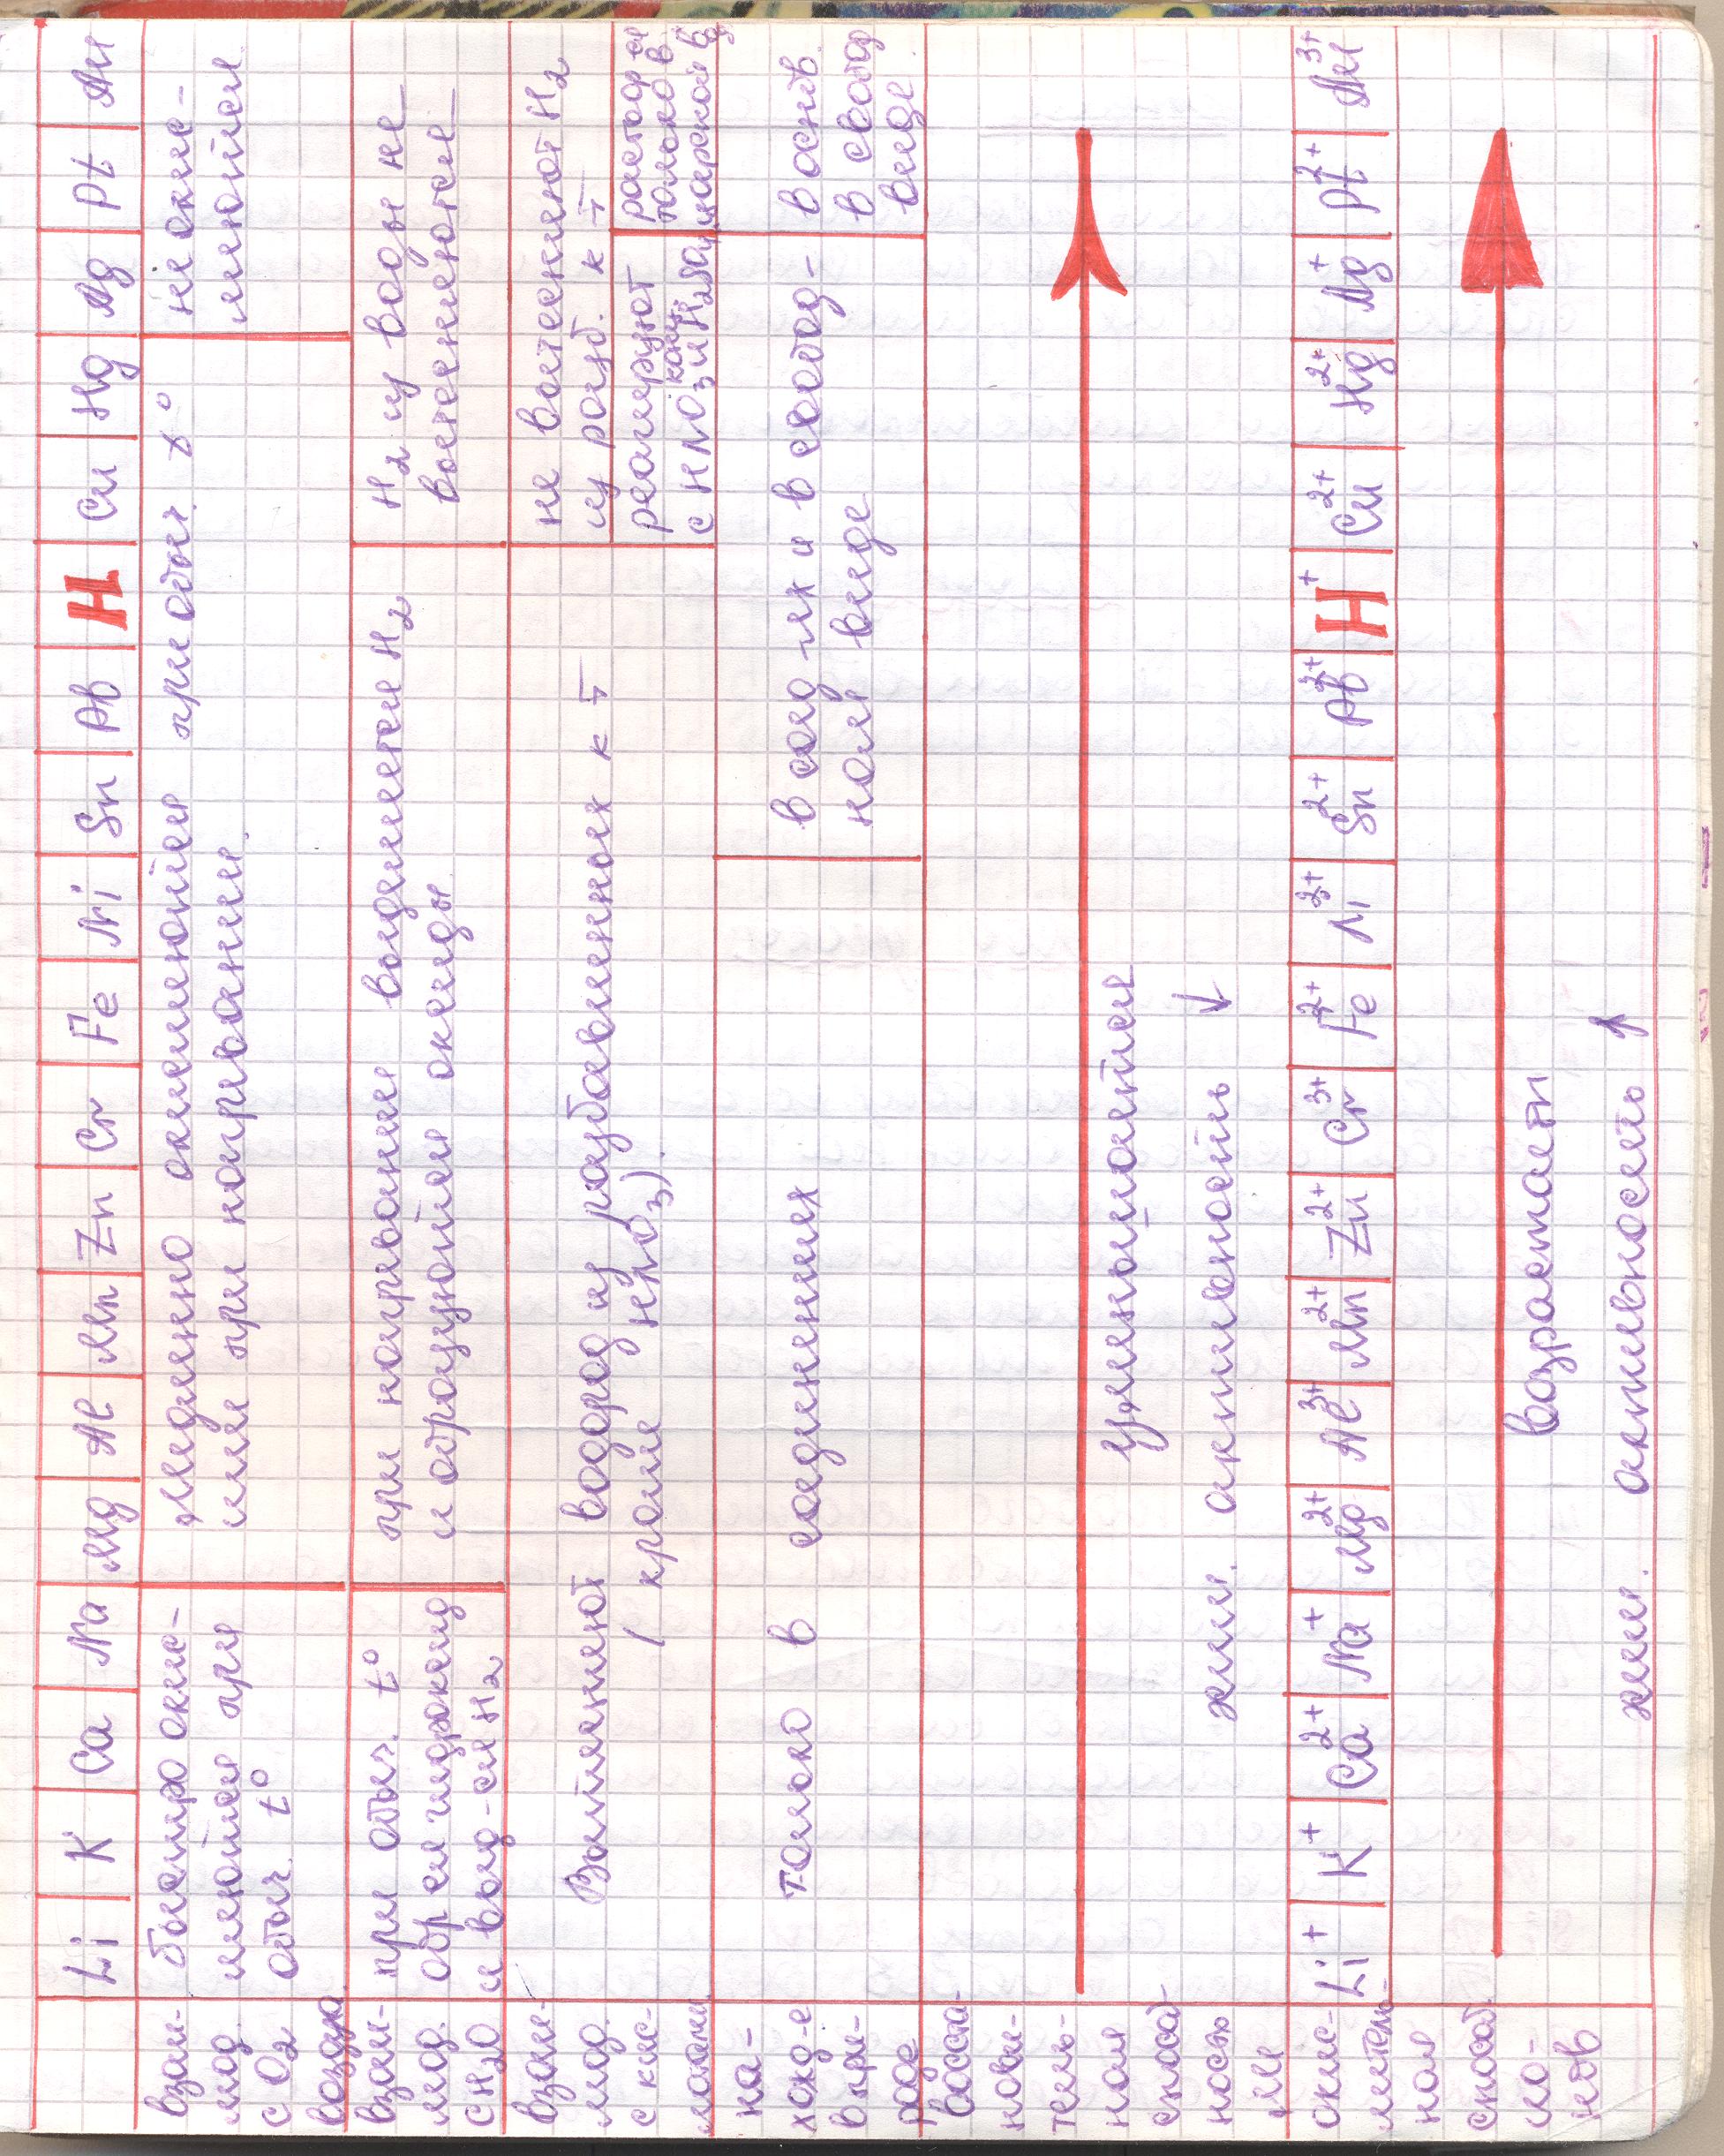 Li K Ca Na Mg Al Mn Zn Cr Fe Ni Sn Pb H Cu Hg Ag Pt Au
взаи-
мод.
с O₂
воздуха
быстро окис-
ляются при
обыч. t°
медленно окисляются при обыч. t°
или при нагревании
не окис-
ляются
взаи-
мод.
с H₂O
при обыч. t°
обр-ся гидроксид
и выд-ся H₂
при нагревании выделяется H₂
и образуются оксиды
H₂ из воды не
вытесняются
взаи-
мод.
с кис-
лотами
Вытесняют водород из разбавленных к-т
(кроме HNO₃)
не вытесняют H₂
из разб. к-т
реагируют
с HNO₃ и H₂SO₄
конц.
раствор-ся
только в
царской в
на-
ход-е
в при-
роде
только в соединениях
в соед-ях и в свобод-
ном виде
в оснв
в свобод
виде
восста-
нови-
тель-
ная
способ-
ность
уменьшается
хим. активность ↓
Li⁺ K⁺ Ca²⁺ Na⁺ Mg²⁺ Al³⁺ Mn²⁺ Zn²⁺ Cr³⁺ Fe²⁺ Ni²⁺ Sn²⁺ Pb²⁺ H⁺ Cu²⁺ Hg²⁺ Ag⁺ Pt²⁺ Au³⁺
окис-
литель-
ная
способ.
ио-
нов
возрастает
хим. активность ↑